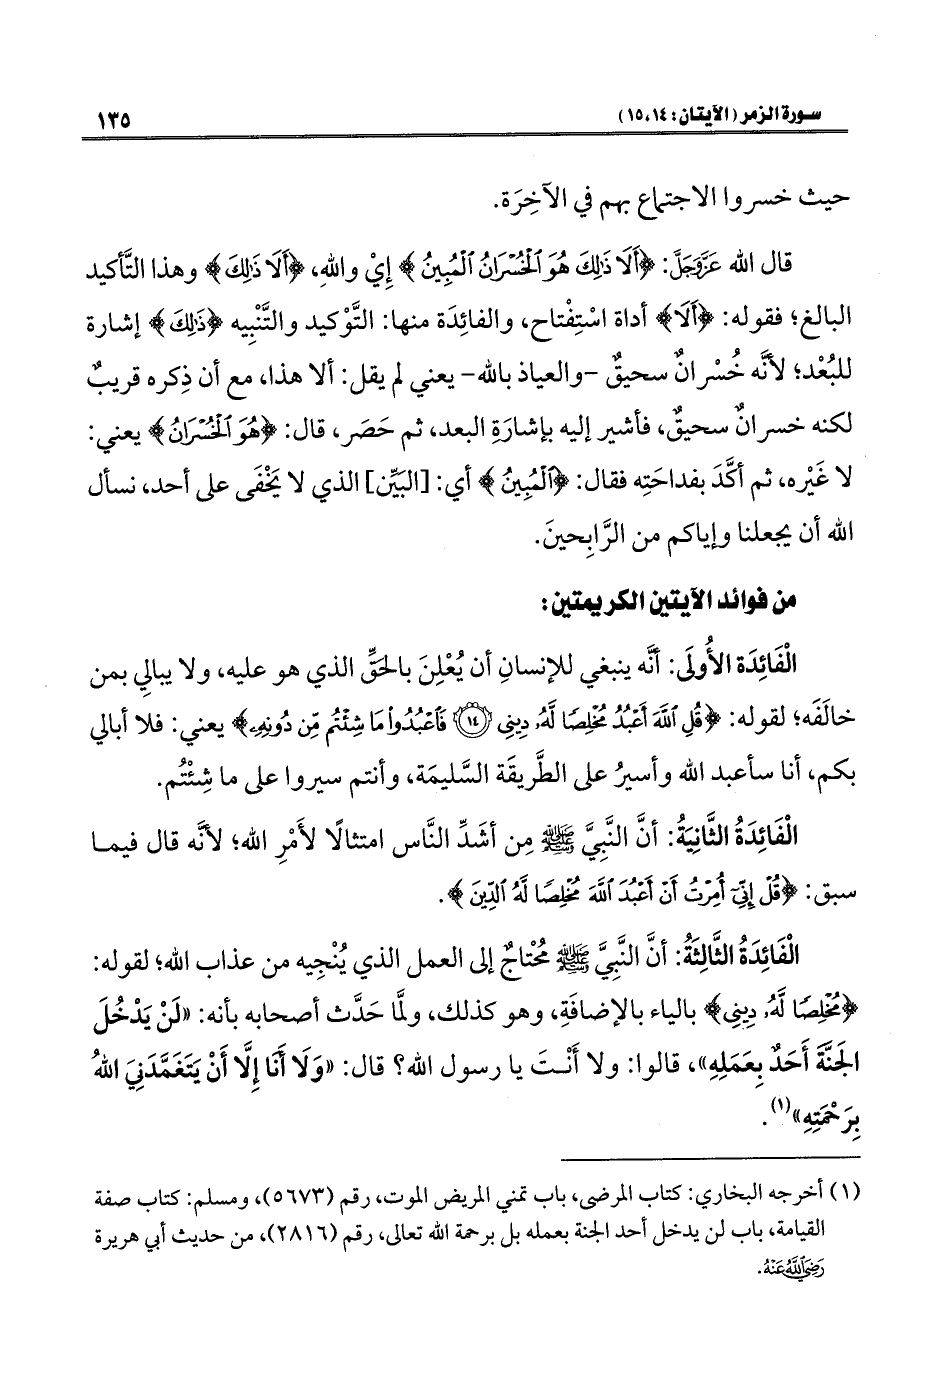 سورة الزمر (الآيتان: ١٤، ١٥)
١٣٥
حيث خسروا الاجتماع بهم في الآخِرَة.
قال الله عَزَّوَجَلَّ: ﴿أَلَا ذَٰلِكَ هُوَ ٱلْخُسْرَانُ ٱلْمُبِينُ﴾ إِيْ واللهِ، ﴿أَلَا ذَٰلِكَ﴾ وهذا التَّأكيد
البالغ؛ فقوله: ﴿أَلَا﴾ أداة اسْتِفْتاح، والفائِدَة منها: التَّوْكيد والتَّنْبيه ﴿ذَٰلِكَ﴾ إشارة
للبُعْد؛ لأنَّه خُسْرانٌ سحيقٌ -والعياذ بالله- يعني لم يقل: ألا هذا، مع أن ذِكره قريبٌ
لكنه خسرانٌ سحيقٌ، فأشير إليه بإشارةِ البعد، ثم حَصَر، قال: ﴿هُوَ ٱلْخُسْرَانُ﴾ يعني:
لا غَيْره، ثم أكَّدَ بفداحَتِه فقال: ﴿ٱلْمُبِينُ﴾ أي: [البيِّن] الذي لا يَخْفَى على أحد، نسأل
الله أن يجعلنا وإياكم من الرَّابِحينَ.
من فوائد الآيتين الكريمتين:
الْفَائِدَة الأُولَى: أنَّه ينبغي للإنسانِ أن يُعْلِنَ بالحَقِّ الذي هو عليه، ولا يبالي بمن
خالَفَه؛ لقوله: ﴿قُلِ ٱللَّهَ أَعْبُدُ مُخْلِصًا لَّهُۥ دِينِى ١٤ فَٱعْبُدُوا۟ مَا شِئْتُم مِّن دُونِهِۦ﴾ يعني: فلا أبالي
بكم، أنا سأعبد الله وأسيرُ على الطَّريقَة السَّليمَة، وأنتم سيروا على ما شِئْتُم.
الْفَائِدَةُ الثَّانِيَةُ: أنَّ النَّبِيَّ ﷺ مِن أشَدِّ النَّاس امتثالًا لأَمْرِ الله؛ لأنَّه قال فيما
سبق: ﴿قُلْ إِنِّىٓ أُمِرْتُ أَنْ أَعْبُدَ ٱللَّهَ مُخْلِصًا لَّهُ ٱلدِّينَ﴾.
الْفَائِدَةُ الثَّالِثَةُ: أنَّ النَّبِيَّ ﷺ مُحْتاجٌ إلى العمل الذي يُنْجِيه من عذاب الله؛ لقوله:
﴿مُخْلِصًا لَّهُۥ دِينِى﴾ بالياء بالإضافَةِ، وهو كذلك، ولمَّا حَدَّث أصحابه بأنه: «لَنْ يَدْخُلَ
الجَنَّةَ أَحَدٌ بِعَمَلِهِ»، قالوا: ولا أنْتَ يا رسول الله؟ قال: «وَلَا أَنَا إِلَّا أَنْ يَتَغَمَّدَنِيَ اللهُ
بِرَحْمَتِهِ»(١).
(١) أخرجه البخاري: كتاب المرضى، باب تمني المريض الموت، رقم (٥٦٧٣)، ومسلم: كتاب صفة
القيامة، باب لن يدخل أحد الجنة بعمله بل برحمة الله تعالى، رقم (٢٨١٦)، من حديث أبي هريرة
رَضِيَ ٱللَّهُ عَنْهُ.